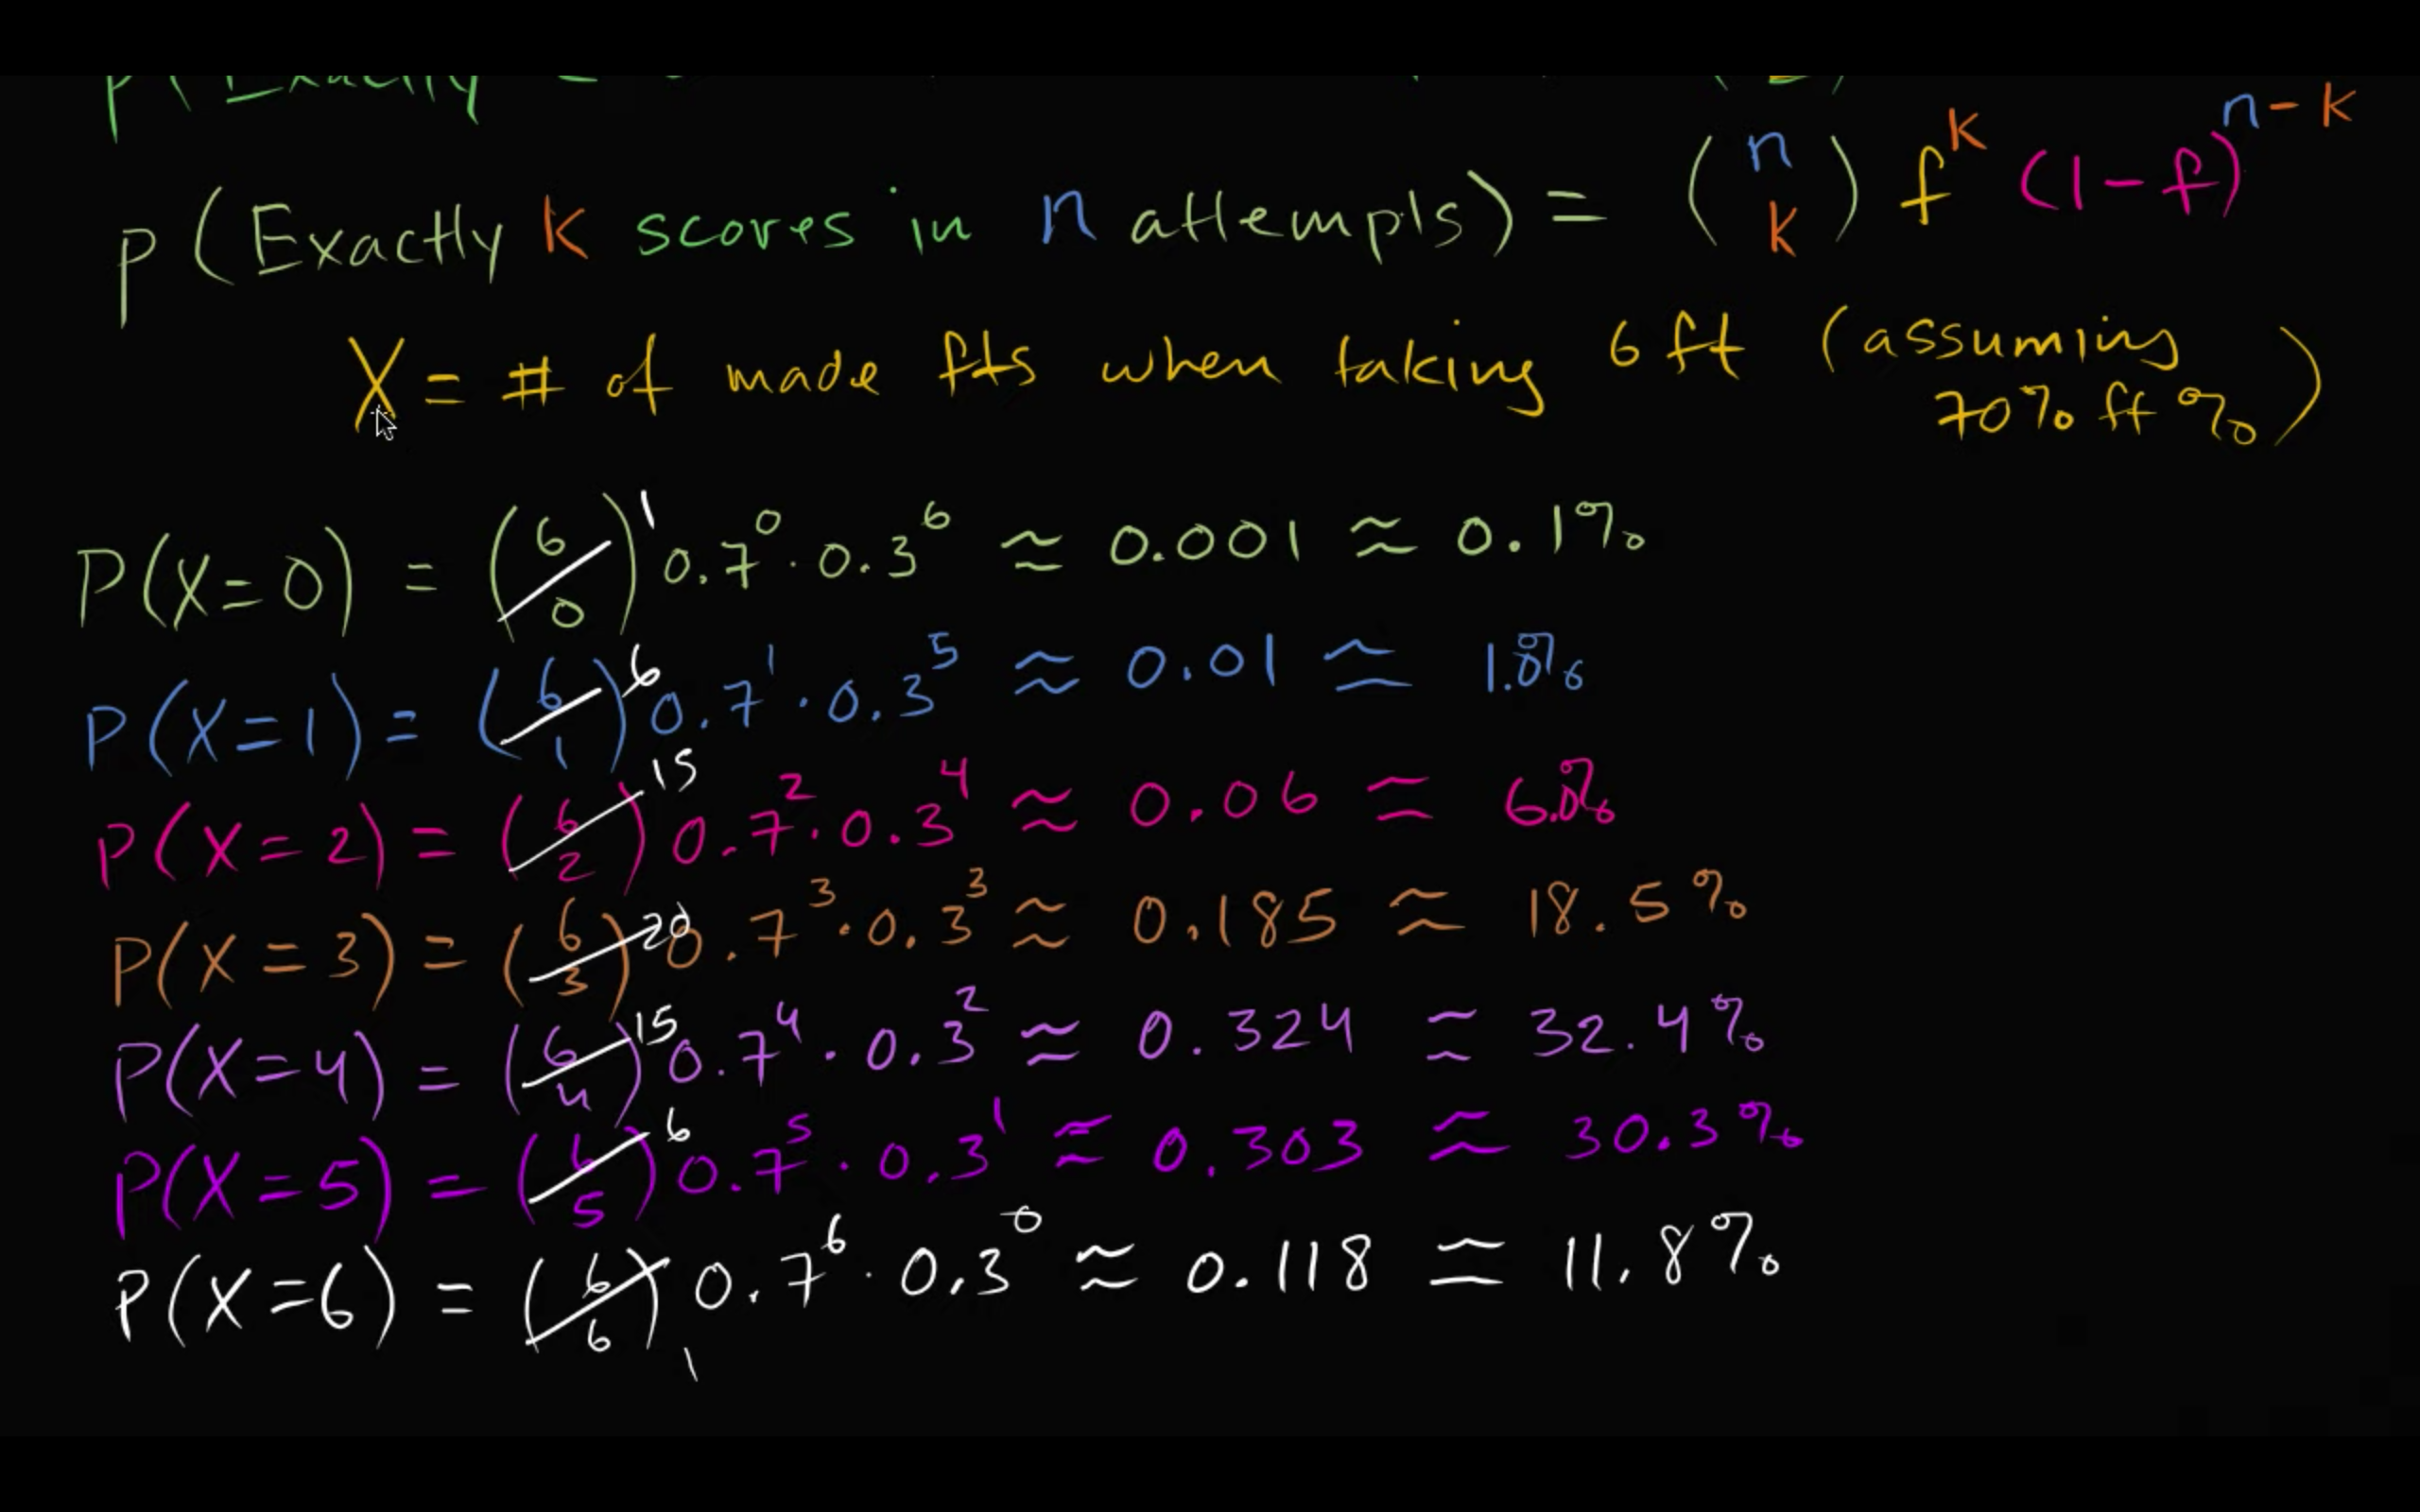 P(Exactly
P(Exactly k scores in n attempts) = (n k) f^k (1-f)^n-k
X = # of made fts when taking 6 ft (assuming 70% ft %)
P(X=0) = (6 0) 1 0.7^0 · 0.3^6 ≈ 0.001 ≈ 0.1%
P(X=1) = (6 1) 6 0.7^1 · 0.3^5 ≈ 0.01 ≈ 1.0%
P(X=2) = (6 2) 15 0.7^2 · 0.3^4 ≈ 0.06 ≈ 6.0%
P(X=3) = (6 3) 20 0.7^3 · 0.3^3 ≈ 0.185 ≈ 18.5%
P(X=4) = (6 4) 15 0.7^4 · 0.3^2 ≈ 0.324 ≈ 32.4%
P(X=5) = (6 5) 6 0.7^5 · 0.3^1 ≈ 0.303 ≈ 30.3%
P(X=6) = (6 6) 1 0.7^6 · 0.3^0 ≈ 0.118 ≈ 11.8%